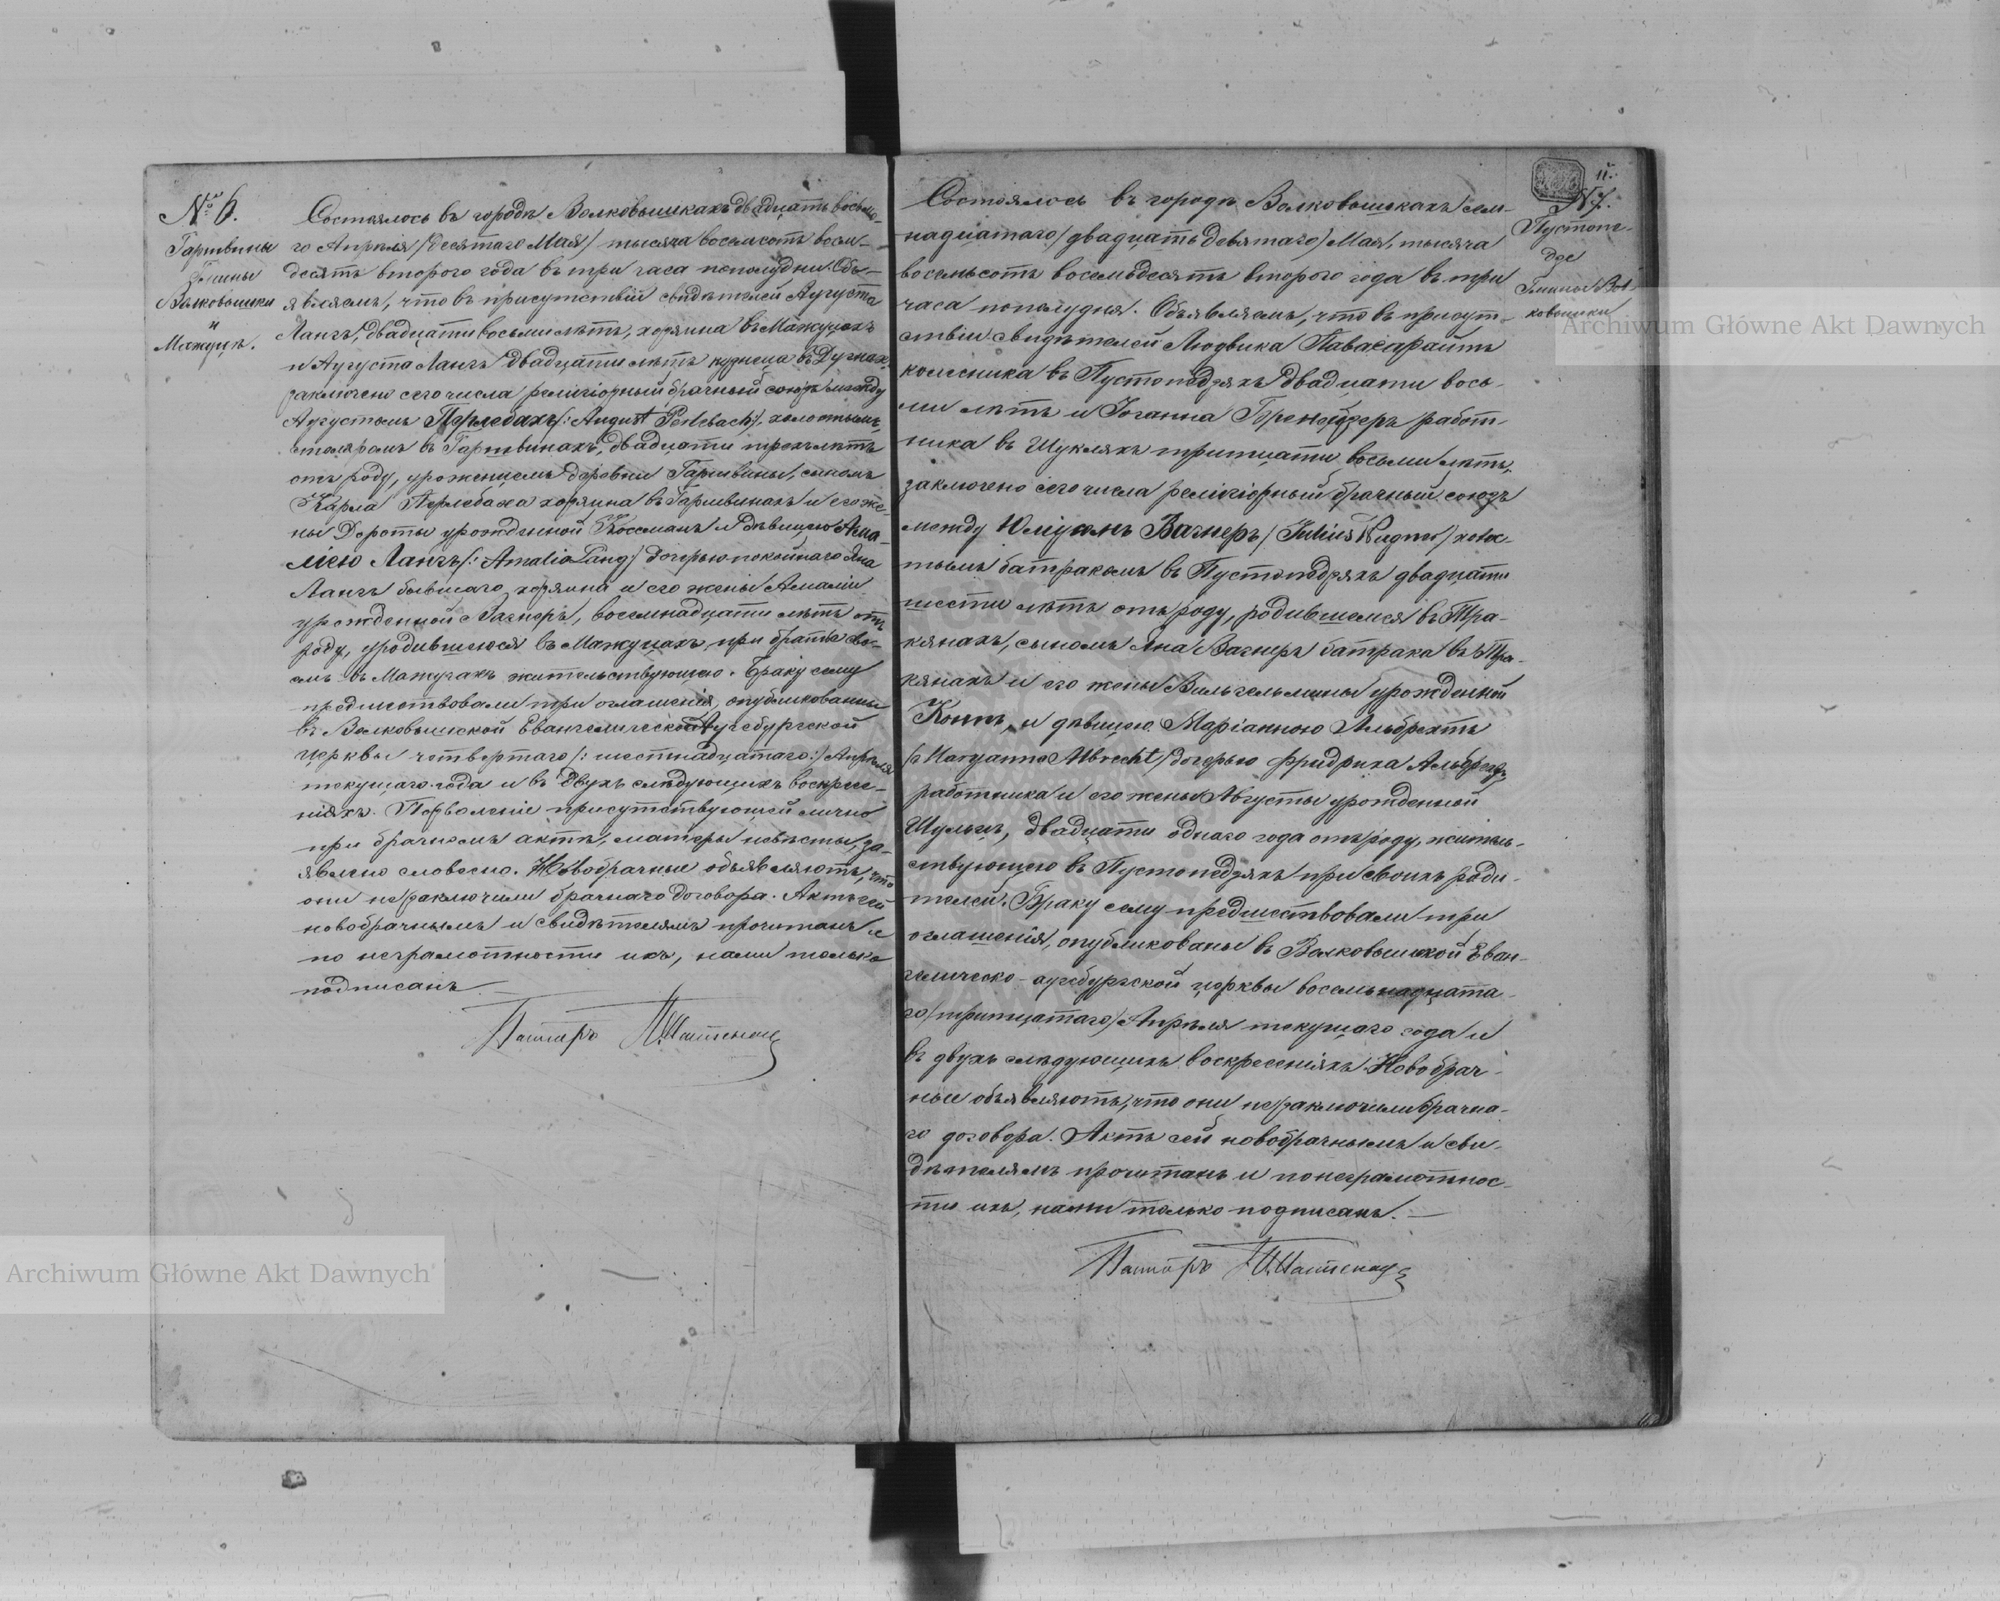 № 6.
Гаршвины
Гмины
Волковышки
и
Мажуце.
Состоялось въ городѣ Волковышкахъ двадцать восьма-
го Апрѣля /десятаго Мая/ тысяча восемсотъ восем-
десятъ второго года въ три часа пополудни. Объ-
являемъ, что въ присутствіи свидѣтелей Августа
Лангъ, двадцати восьми лѣтъ, хозяина въ Мажуцахъ
и Августа Лангъ двадцати лѣтъ кузнеца въ
заключено сего числа религіозный брачный союзъ между
Августомъ Перлебахъ /: August Perlebach /, холостымъ,
столяромъ въ Гаршвинахъ, двадцати трехъ лѣтъ
отъ роду, уроженцемъ деревни Гаршвины, сыномъ
Карла Перлебаха хозяина въ Гаршвинахъ и его же-
ны Дороты урожденной Коссманъ и дѣвицею Ама-
лією Лангъ /: Amalia Lang / дочерью покойнаго Яна
Лангъ бывшаго хозяина и его жены Амаліи
урожденной Вагнеръ, восемнадцати лѣтъ отъ
роду, уродившеюся въ Мажуцахъ, при братѣ сво-
емъ въ Мажуцахъ жительствующею. Браку сему
предшествовали три оглашенія, опубликованны
въ Волковышской Евангелической Аугсбургской
церквы четвертаго /: шестнадцатаго :/ Апрѣля
текущаго года и въ двухъ слѣдующихъ воскресе-
ніяхъ. Позволеніе присутствующей лично
при брачномъ актѣ, матери невѣсты, за-
явлено словесно. Новобрачные объявляютъ, что
они не заключили брачнаго договора. Актъ сей
новобрачнымъ и свидѣтелямъ прочитанъ и
по неграмотности ихъ, нами только
подписанъ.
Пасторъ
11.
№ 7.
Пустопе-
дзе
Гмина Вол
ковышки
Состоялось въ городѣ Волковышкахъ сем-
надцатаго /двадцать девятаго/ Мая, тысяча
восемьсотъ восемьдесятъ второго года въ три
часа пополудня. Объявляемъ, что въ присут-
ствіи свидѣтелей Людвика Павасарайтъ
колесника въ Пустопедзяхъ двадцати вось-
ми лѣтъ и Іоганна работ-
ника въ Шукляхъ тритцати восьми лѣтъ,
заключено сего числа религіозный брачный союзъ
между Юліусомъ Вагнеръ / Julius Wagner / холос-
тымъ батракомъ въ Пустопедзяхъ двадцати
шести лѣтъ отъ роду, родившемся въ Тра-
кянахъ, сыномъ Яна Вагнеръ батрака въ Тра-
кянахъ и его жены Вильгельмины урожденной
и дѣвицею Маріанною Альбрехтъ
/: Maryanna Albrecht / дочерью Фридриха Альбрехтъ,
работника и его жены Августы урожденной
Шульцъ, двадцати одного года отъ роду, житель-
ствующею въ Пустопедзяхъ при своихъ роди-
телей. Браку сему предшествовали три
оглашенія, опубликованы въ Волковышской Еван-
гелическо-аугсбургской церквы восемьнадцата-
го /тритцатаго/ Апрѣля текущаго года и
въ двухъ слѣдующихъ воскресеніяхъ. Новобрач-
ные объявляютъ, что они не заключили брачна-
го договора. Актъ сей новобрачнымъ и сви-
дѣтелямъ прочитанъ и по неграмотнос-
ти ихъ, нами только подписанъ.
Пасторъ
Archiwum Główne Akt Dawnych
Archiwum Główne Akt Dawnych